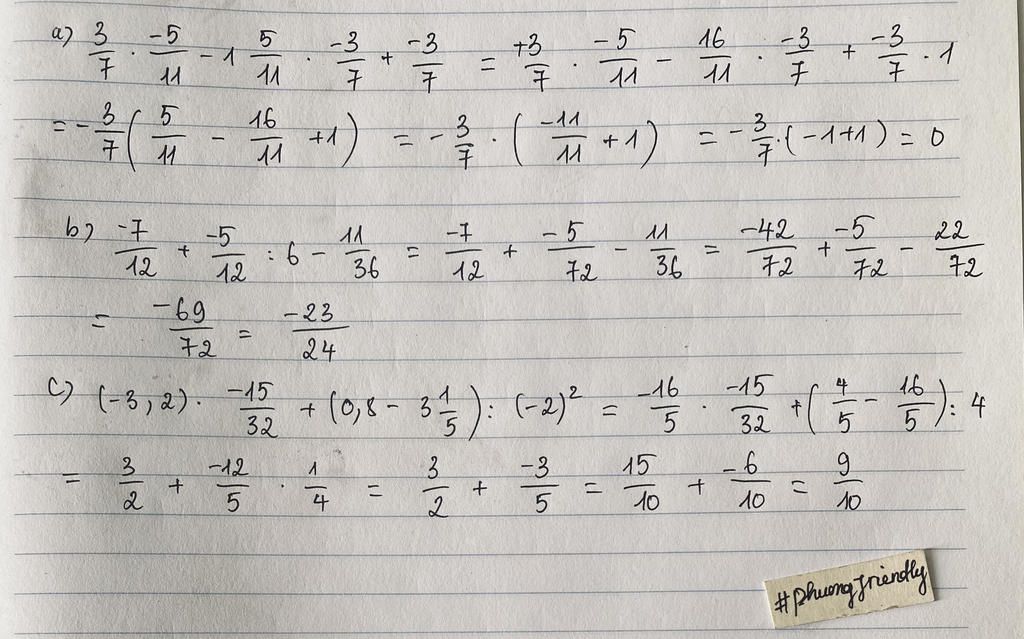 a) 3/7 · -5/11 - 1 5/11 · -3/7 + -3/7 = +3/7 · -5/11 - 16/11 · -3/7 + -3/7 · 1
= - 3/7 ( 5/11 - 16/11 + 1 ) = - 3/7 · ( -11/11 + 1 ) = - 3/7 · ( -1 + 1 ) = 0
b) -7/12 + -5/12 : 6 - 11/36 = -7/12 + -5/72 - 11/36 = -42/72 + -5/72 - 22/72
= -69/72 = -23/24
c) (-3,2) · -15/32 + (0,8 - 3 1/5) : (-2)² = -16/5 · -15/32 + ( 4/5 - 16/5 ) : 4
= 3/2 + -12/5 · 1/4 = 3/2 + -3/5 = 15/10 + -6/10 = 9/10
#phuongfriendly